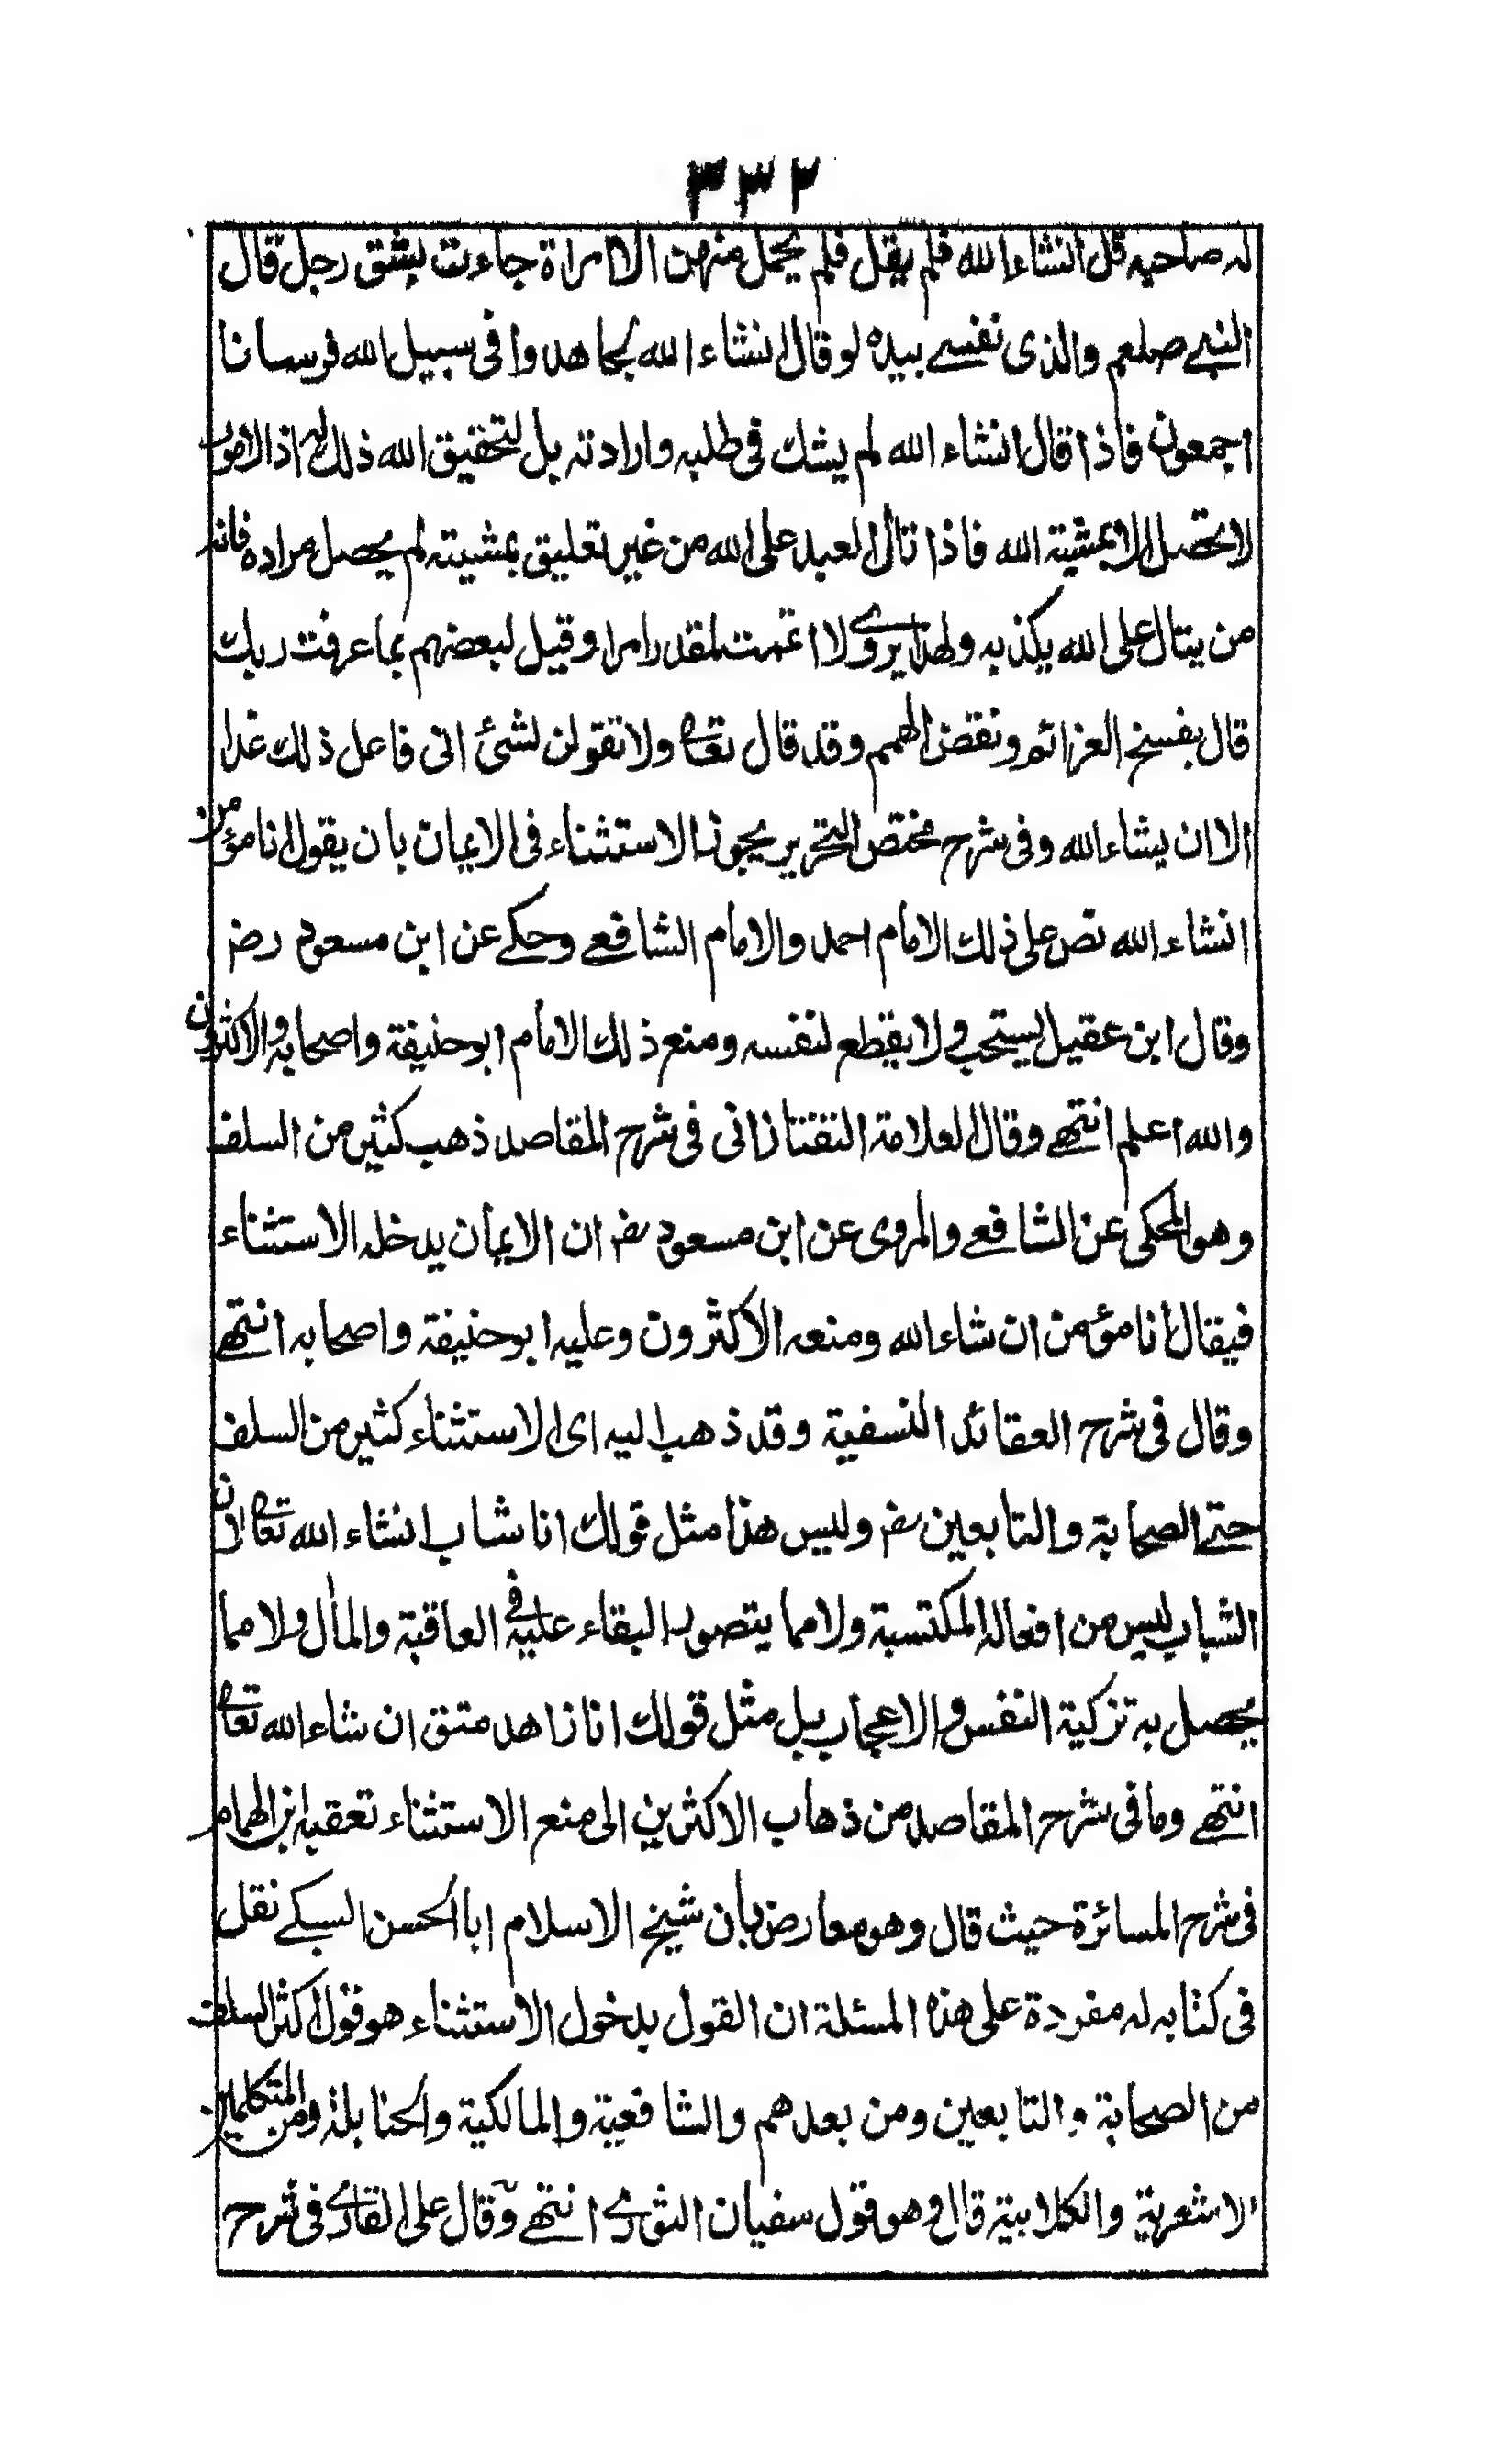 ٣٣٢
له صاحبه قل انشاء الله فلم يقل فلم يحمل منهن الا امراة جاءت بشق رجل قال
النبي صلعم والذى نفسي بيده لو قال انشاء الله لجاهدوا فى سبيل الله فرسانا
اجمعون فاذا قال انشاء الله لم يشك فى طلبه وارادته بل لتحقيق الله ذلك له اذ الامور
لا تحصل الا بمشيته الله فاذا تالى العبد على الله من غير تعليق بمشيته لم يحصل مراده فانه
من يتال على الله يكذبه ولهذا يروى لا اتممت لمقدر امرا وقيل لبعضهم بما عرفت ربك
قال بفسخ العزائم ونقض الهمم وقد قال تعالى ولا تقولن لشئ انى فاعل ذلك غدا
الا ان يشاء الله وفى شرح مختصر التحرير يجوز الاستثناء فى الايمان بان يقول انا مؤمن
انشاء الله نص على ذلك الامام احمد والامام الشافعي وحكي عن ابن مسعود رض
وقال ابن عقيل يستحب ولا يقطع لنفسه ومنع ذلك الامام ابو حنيفة واصحابه والاكثرون
والله اعلم انتهى وقال العلامة التفتازانى فى شرح المقاصد ذهب كثير من السلف
وهو المحكى عن الشافعي والمروى عن ابن مسعود رض ان الايمان يدخله الاستثناء
فيقال انا مؤمن ان شاء الله ومنعه الاكثرون وعليه ابو حنيفة واصحابه انتهى
وقال فى شرح العقائد النسفية وقد ذهب اليه اى الاستثناء كثير من السلف
حتى الصحابة والتابعين رض وليس هذا مثل قولك انا شاب انشاء الله تعالى لان
الشباب ليس من افعاله المكتسبة ولا مما يتصور البقاء عليه فى العاقبة والمأل ولا مما
يحصل به تزكية النفس والاعجاب بل مثل قولك انا زاهد متق ان شاء الله تعالى
انتهى وما فى شرح المقاصد من ذهاب الاكثرين الى منع الاستثناء تعقبه ابن الهمام
فى شرح المسائرة حيث قال وهو معارض بأن شيخ الاسلام ابا الحسن السبكي نقل
فى كتابه له مفردة على هذه المسئلة ان القول بدخول الاستثناء هو قول اكثر السلف
من الصحابة والتابعين ومن بعدهم والشافعية والمالكية والحنابلة ومن المتكلمين
الاشعرية والكلابية قال وهو قول سفيان الثورى انتهى وقال على القارى فى شرح